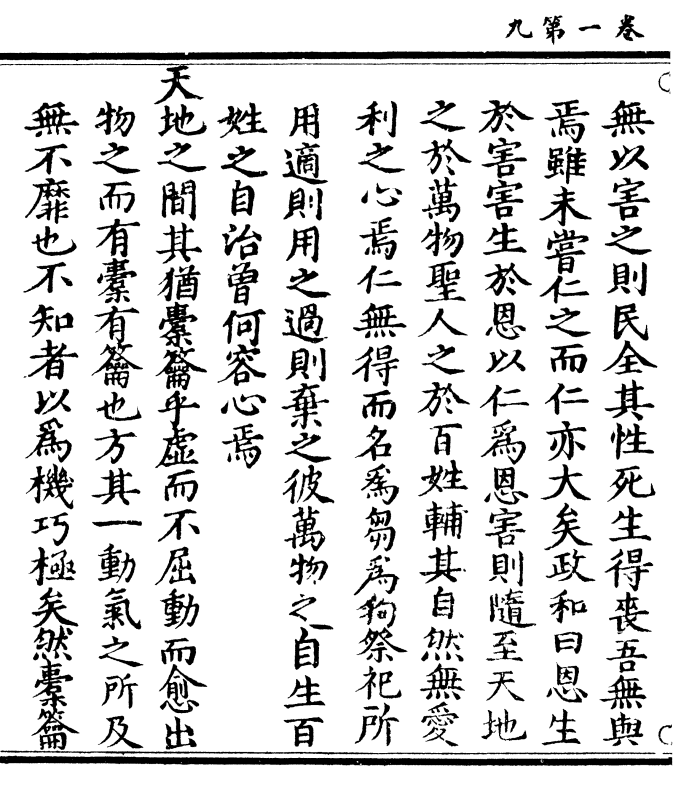 卷一第九
無以害之則民全其性死生得喪吾無與
焉雖未嘗仁之而仁亦大矣政和曰恩生
於害害生於恩以仁爲恩害則隨至天地
之於萬物聖人之於百姓輔其自然無愛
利之心焉仁無得而名爲芻爲狗祭祀所
用適則用之過則棄之彼萬物之自生百
姓之自治曾何容心焉
天地之間其猶橐籥乎虛而不屈動而愈出
物之而有橐有籥也方其一動氣之所及
無不靡也不知者以爲機巧極矣然橐籥